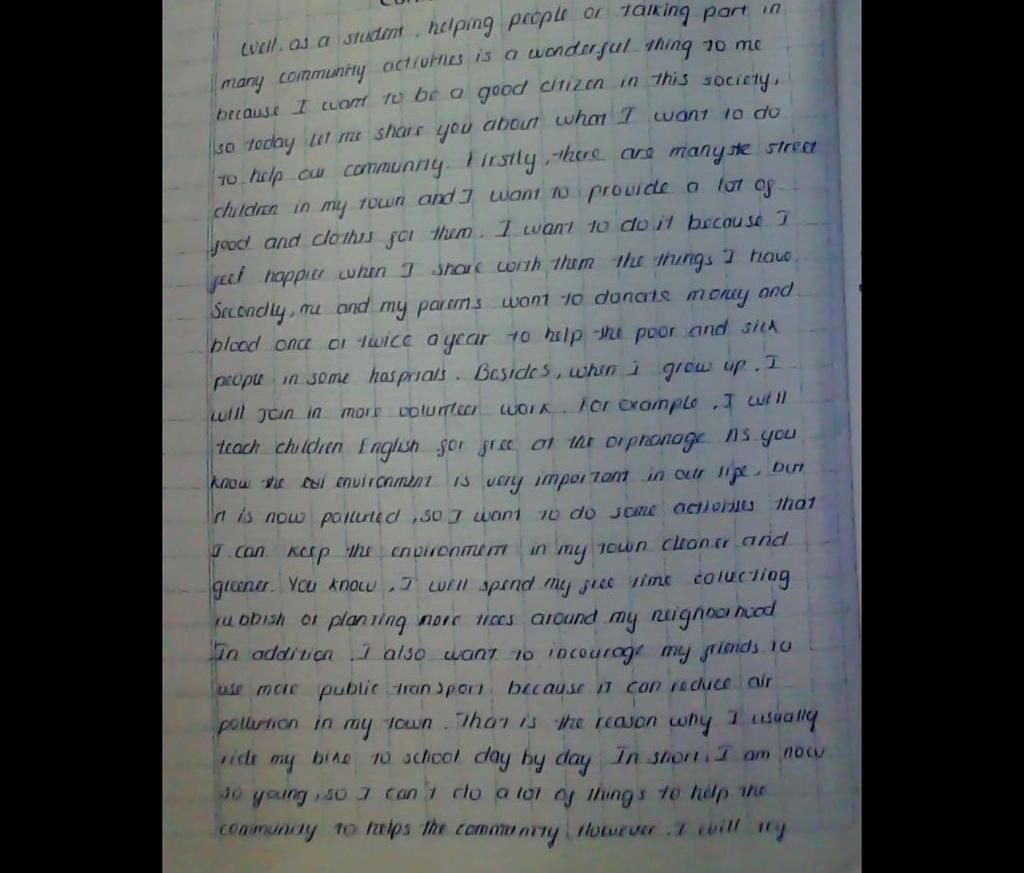 Well, as a student, helping people or talking part in
many community activities is a wonderful thing to me
because I want to be a good citizen in this society,
so today let me share you about what I want to do
to help our community. Firstly, there are many street
children in my town and I want to provide a lot of
food and clothes for them. I want to do it because I
feel happier when I share with them the things I have.
Secondly, me and my parents want to donate money and
blood once or twice a year to help the poor and sick
people in some hospitals. Besides, when i grow up, I
will join in more volunteer work. For example, I will
teach children English for free at the orphanage. As you
know the environment is very important in our life, but
it is now polluted, so I want to do some activities that
I can keep the environment in my town cleaner and
greener. You know, I will spend my free time collecting
rubbish or planting more trees around my neighborhood
In addition, I also want to incourage my friends to
use more public transport because it can reduce air
pollution in my town. That is the reason why I usually
ride my bike to school day by day. In short, I am now
so young, so I can't do a lot of things to help the
community to helps the community. However, I will try